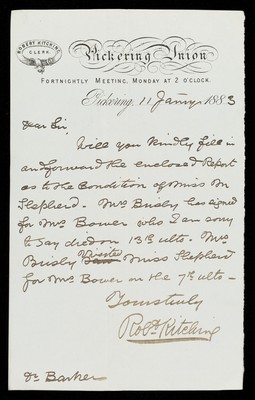 ROBERT KITCHING,
CLERK.
Pickering Union
FORTNIGHTLY MEETING, MONDAY AT 2 O'CLOCK.
Pickering, 11 Jany 1883
Dear Sir,
Will you kindly fill in
and forward the enclosed Report
as to the Condition of Miss M
Shepherd. Mrs Brisby has signed
for Mrs Bower who I am sorry
to say died on 13th ulto. Mrs
Brisby Visited Miss Shepherd
for Mrs Bower on the 7th ulto -
Yours truly
Robt Kitching
Dr Barker